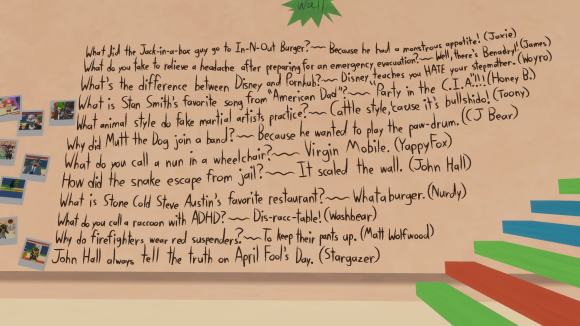 Wall
What did the Jack-in-a-box guy go to In-N-Out Burger?~~ Because he had a monstrous appetite! (Joxie)
What do you take to relieve a headache after preparing for an emergency evacuation?~~ Well, there's Benadryl! (James)
What's the difference between Disney and Pornhub?~~ Disney teaches you HATE your stepmother. (Woyro)
What is Stan Smith's favorite song from "American Dad"?~~ "Party in the C.I.A."!!! (Honey B.)
What animal style do fake martial artists practice?~~ Cattle style, 'cause it's bullshido! (Toony)
Why did Matt the Dog join a band?~~ Because he wanted to play the paw-drum. (CJ Bear)
What do you call a nun in a wheelchair?~~ Virgin Mobile. (YappyFox)
How did the snake escape from jail?~~ It scaled the wall. (John Hall)
What is Stone Cold Steve Austin's favorite restaurant?~~ Whataburger. (Nurdy)
What do you call a raccoon with ADHD?~~ Dis-racc-table! (Washbear)
Why do firefighters wear red suspenders?~~ To keep their pants up. (Matt Wolfwood)
John Hall always tell the truth on April Fool's Day. (Stargazer)